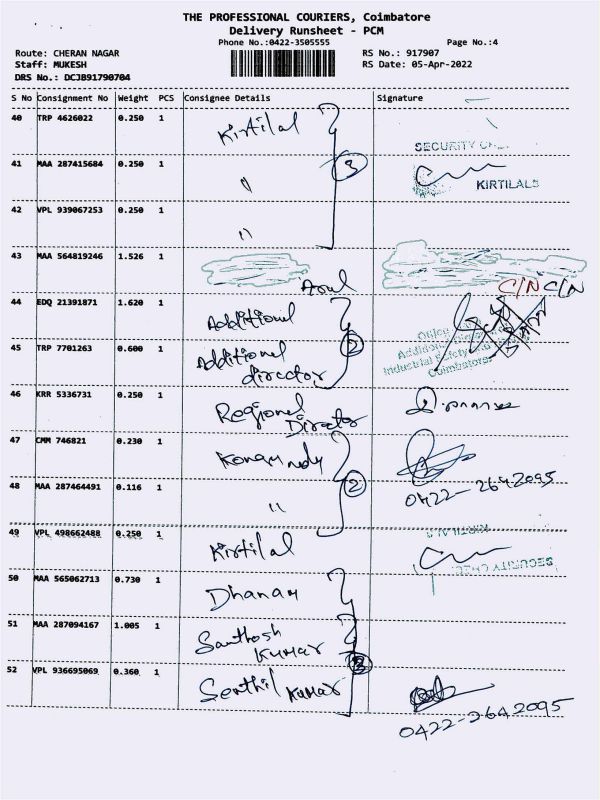 THE PROFESSIONAL COURIERS, Coimbatore
Delivery Runsheet - PCM
Phone No.:0422-3505555
Page No.:4
Route: CHERAN NAGAR
RS No.: 917907
Staff: MUKESH
RS Date: 05-Apr-2022
DRS No.: DCJ891790704
S No Consignment No Weight PCS Consignee Details Signature
40 TRP 4626022 0.250 1 Kirtilal
SECURITY
41 MAA 287415684 0.250 1 " 3
KIRTILALS
42 VPL 939067253 0.250 1 "
43 MAA 564819246 1.526 1 Arul
C/N C/N
44 EDQ 21391871 1.620 1 Additional
45 TRP 7701263 0.600 1 Additional director 2
Industrial Safety
Coimbatore
46 KRR 5336731 0.250 1 Regional Director
47 CMM 746821 0.230 1
0422-2692095
48 MAA 287464491 0.116 1 " 2
49 VPL 498662488 0.250 1 Kirtilal
KIRTILALS
SECURITY CHEC
50 MAA 565062713 0.730 1 Dhanam
51 MAA 287094167 1.005 1 Santhosh Kumar
52 VPL 936695069 0.360 1 Senthil Kumar
0422-2642095